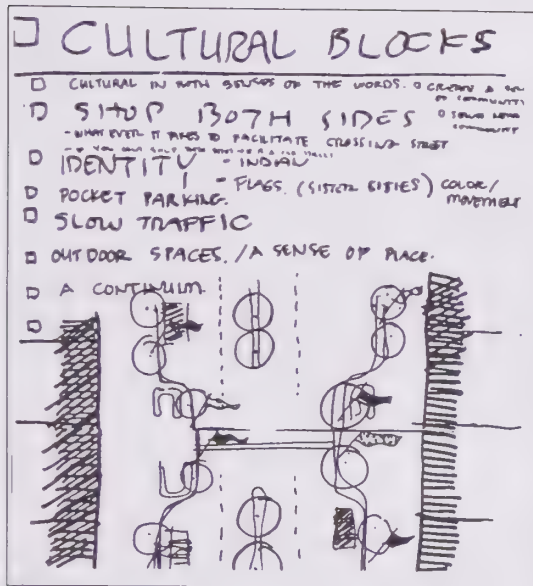 CULTURAL BLOCKS
CULTURAL IN BOTH SENSES OF THE WORDS. CREATE A
OF COMMUNITY
SHOP BOTH SIDES
COMMUNITY
- WHAT EVER IT TAKES TO FACILITATE CROSSING STREET
IDENTITY - INDIAN
- FLAGS. (SISTER CITIES) COLOR/
MOVEMENT
POCKET PARKING.
SLOW TRAFFIC
OUTDOOR SPACES. / A SENSE OF PLACE.
A CONTINUUM.